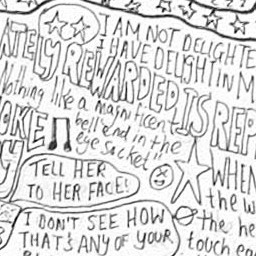 I AM NOT DELIGHTE
I HAVE DELIGHT IN M
ATELY REWARDED IS REP
Nothing like a magnificent
bell end in the
eye socket"
OKE
TELL HER
TO HER FACE!
WHEN
the w
the he
touch ea
I DON'T SEE HOW
THAT'S ANY OF YOUR